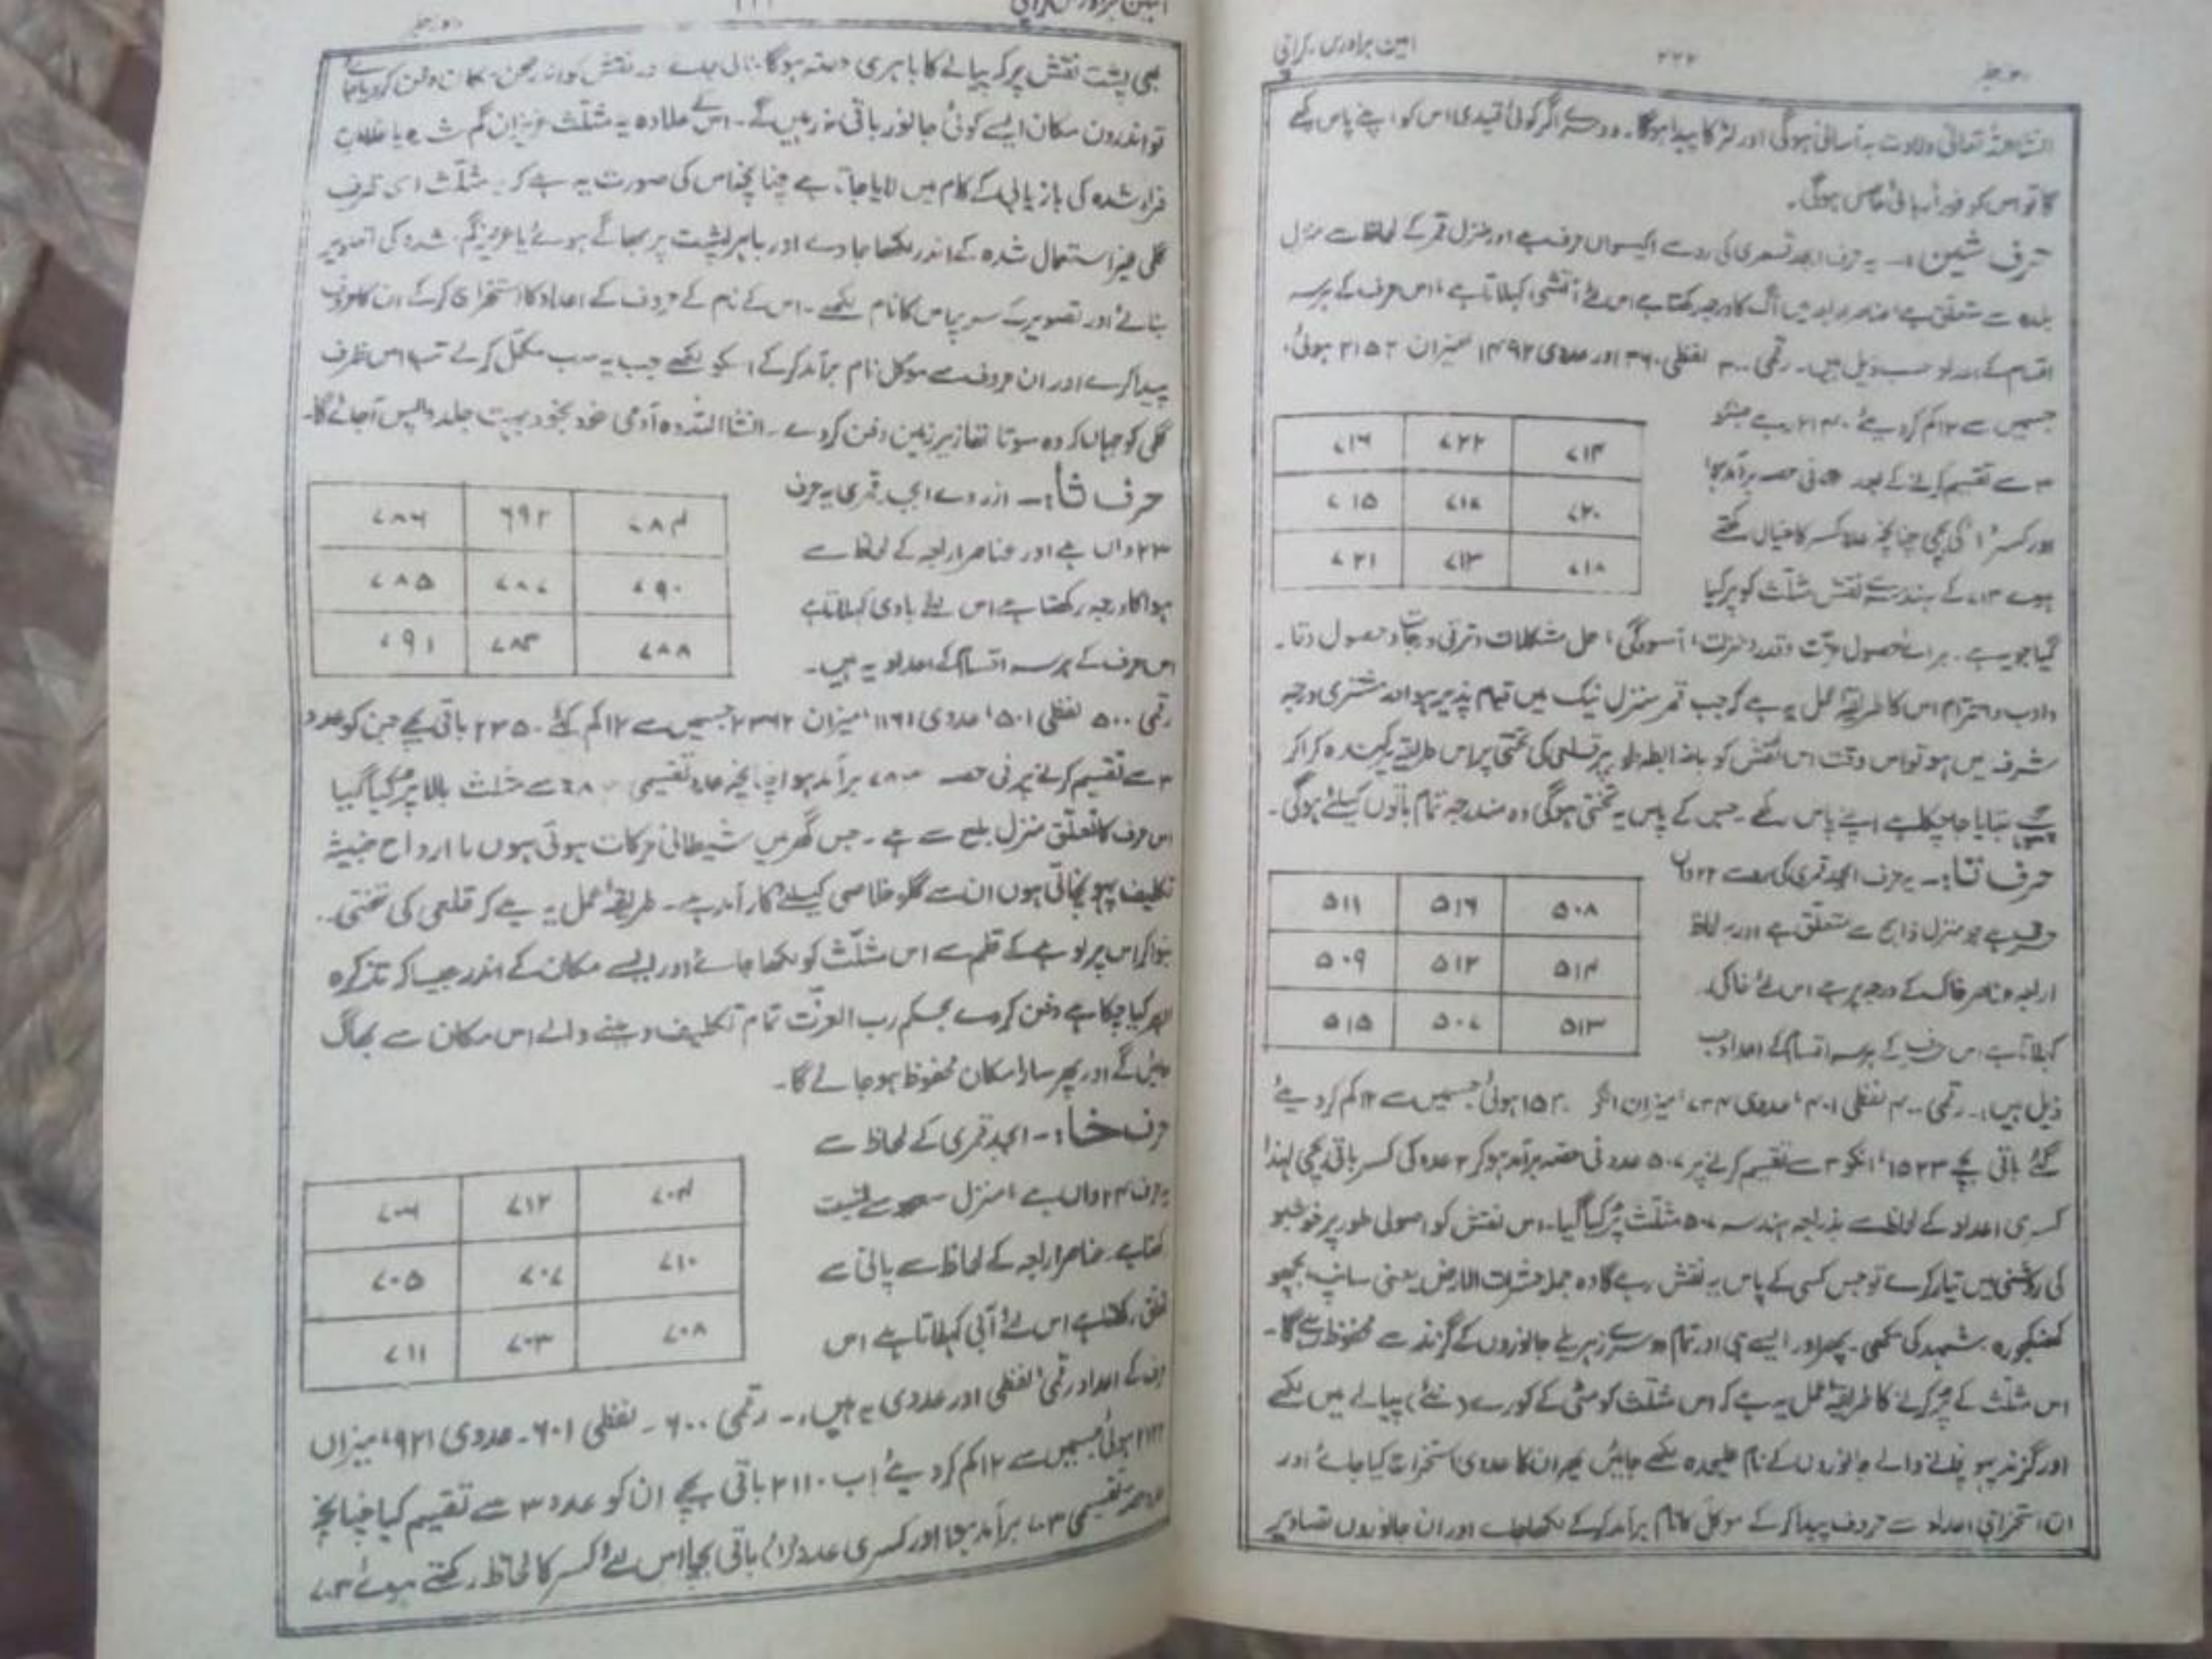 امین برادرس، کراچی ۲۲۲
انشاءاللہ تعالیٰ ولادت بہ آسانی ہوگی اور لڑکا پیدا ہوگا۔ اگر کوئی قیدی اس کو اپنے پاس رکھے
گا تو اس کو فوراً رہائی حاصل ہوگی۔
حرف شین :- یہ حرف ابجد قمری کی رو سے اکیسواں حرف ہے اور منزل قمر کے لحاظ سے منزل
بلدہ سے متعلق ہے عناصر اربعہ میں آگ کا درجہ رکھتا ہے اس لئے آتشی کہلاتا ہے، اس حرف کے ہر سہ
اقسام کے اعداد حسب ذیل ہیں۔ رقمی ۳۰۰ لفظی ۳۶۰ اور عددی ۱۴۹۲ میزان ۲۱۵۲ ہوئی،
جسمیں سے ۱۲ کم کر دیئے ۲۱۴۰ رہے جنکو
۷۱۶ ۷۲۲ ۷۱۴
۳ سے تقسیم کرنے کے بعد فی حصہ برآمد ہوا
۷۱۵ ۷۱۷ ۷۲۰
اور کسر ۱ کی بچی چنانچہ عدد کسر کا خیال رکھتے
۷۲۱ ۷۱۳ ۷۱۸
ہوئے ۷۱۳ کے ہندسہ سے نقش مثلث کو پر کیا
گیا جو یہ ہے۔ برائے حصول عزت و قدر و منزلت، آسودگی، حل مشکلات و ترقی درجات و حصول
و ادب و احترام اس کا طریقۂ عمل یہ ہے کہ جب قمر منزل نیک میں قیام پذیر ہو اور مشتری درجہ
شرف میں ہو تو اس وقت اس نقش کو باضابطہ طور پر قلعی کی تختی پر اس طریقہ پر کندہ کرا کر
بتایا جا چکا ہے اپنے پاس رکھے۔ جس کے پاس یہ تختی ہوگی وہ مندرجہ تمام باتوں کیلئے ہوگی۔
حرف تا :- یہ حرف ابجد قمری کی رو سے ۲۲ واں
۵۱۱ ۵۱۶ ۵۰۸
حرف ہے جو منزل ذابح سے متعلق ہے اور بہ لحاظ
۵۰۹ ۵۱۲ ۵۱۴
اربعہ عناصر خاک کے درجہ پر ہے اس لئے خاکی
۵۱۵ ۵۰۷ ۵۱۳
کہلاتا ہے اس حرف کے ہر سہ اقسام کے اعداد
ذیل ہیں :- رقمی ۴۰۰ لفظی ۴۰۱، عددی ۷۳۴ میزان ہوئی جسمیں سے ۱۲ کم کر دیئے
گئے باقی بچے ۱۵۲۳، انکو ۳ سے تقسیم کرنے پر ۵۰۷ عدد فی حصہ برآمد ہو کر ۲ عدد کی کسر باقی بچی لہٰذا
کسری اعداد کے لحاظ سے بذریعہ ہندسہ ۵۰۷ مثلث پر کیا گیا۔ اس نقش کو اصولی طور پر خوشبو
کی روشنی میں تیار کرے تو جس کسی کے پاس یہ نقش رہے گا وہ جملہ حشرات الارض یعنی سانپ، بچھو
کنکھجورہ، شہد کی مکھی، مچھر اور ایسے ہی اور تمام دوسرے زہریلے جانوروں کے گزند سے محفوظ رہے گا۔
اس مثلث کے پر کرنے کا طریقۂ عمل یہ ہے کہ اس مثلث کو مٹی کے کورے (نئے) پیالے میں لکھے
اور گزند پہونچانے والے جانوروں کے نام علیحدہ لکھے جائیں پھر ان کا عددی استخراج کیا جائے اور
ان استخراجی اعداد سے حروف پیدا کر کے موکل کا نام برآمد کر کے لکھا جائے اور ان جانوروں تصاویر
بھی پشت نقش پر کہ پیالے کا باہری حصہ ہوگا بنالی جائے نقش کو اندر صحن مکان دفن کر دیا جائے
تو اندرون مکان ایسے کوئی جانور باقی نہ رہیں گے۔ اس کے علاوہ یہ مثلث عزیزان گم شدہ یا غلامان
فرار شدہ کی بازیابی کے کام میں لایا جاتا ہے چنانچہ اس کی صورت یہ ہے کہ یہ مثلث اسی ظرف
گلی غیر استعمال شدہ کے اندر لکھا جاوے اور باہر پشت پر بھاگے ہوئے یا عزیز گم شدہ کی تصویر
بنائے اور تصویر کے سر پر اس کا نام لکھے۔ اس کے نام کے حروف کے اعداد کا استخراج کر کے ان کا حروف
پیدا کرے اور ان حروف سے موکل نام برآمد کر کے اسکو لکھے جب یہ سب مکمل کر لے تب اس ظرف
گلی کو جہاں کہ وہ سوتا تھا زیر زمین دفن کر دے۔ انشااللہ وہ آدمی خود بخود بہت جلد واپس آ جائے گا۔
حرف ثا :- ازروئے ابجد قمری یہ حرف
۷۸۶ ۶۹۲ ۷۸۴
۲۳ واں ہے اور عناصر اربعہ کے لحاظ سے
۷۸۵ ۷۸۷ ۷۹۰
ہوا کا درجہ رکھتا ہے اس لئے بادی کہلاتا ہے
۷۹۱ ۷۸۳ ۷۸۸
اس حرف کے ہر سہ اقسام کے اعداد یہ ہیں۔
رقمی ۵۰۰ لفظی ۵۰۱، عددی ۱۳۶۱، میزان ۲۳۶۲ جسمیں سے ۱۲ کم کئے ۲۳۵۰ باقی بچے جن کو عدد
۳ سے تقسیم کرنے پر فی حصہ ۷۸۳ برآمد ہوا چنانچہ عدد تقسیمی سے مثلث بالا پر کیا گیا
اس حرف کا تعلق منزل بلع سے ہے۔ جس گھر میں شیطانی حرکات ہوتی ہوں یا ارواح خبیثہ
تکلیف پہونچاتی ہوں ان سے گلو خلاصی کیلئے کار آمد ہے۔ طریقۂ عمل یہ ہے کہ قلعی کی تختی
بنوا کر اس پر لوہے کے قلم سے اس مثلث کو لکھا جائے اور ایسے مکان کے اندر جیسا کہ تذکرہ
اوپر کیا جا چکا ہے دفن کر دے بحکم رب العزت تمام تکلیف دینے والے اس مکان سے بھاگ
جائیں گے اور پھر سارا مکان محفوظ ہو جائے گا۔
حرف خا :- ابجد قمری کے لحاظ سے
۷۰۶ ۷۱۲ ۷۰۴
یہ حرف ۲۴ واں ہے منزل سعود سے نسبت
۷۰۵ ۷۰۷ ۷۱۰
رکھتا ہے۔ عناصر اربعہ کے لحاظ سے پانی سے
۷۱۱ ۷۰۳ ۷۰۸
تعلق رکھتا ہے اس لئے آبی کہلاتا ہے اس
حرف کے اعداد رقمی، لفظی اور عددی یہ ہیں :- رقمی ۶۰۰ - لفظی ۶۰۱ - عددی ۹۲۱، میزان
۲۱۲۲ ہوئی جسمیں سے ۱۲ کم کر دیئے اب ۲۱۱۰ باقی بچے ان کو عدد ۳ سے تقسیم کیا چنانچہ
تقسیمی ۷۰۳ برآمد ہوا اور کسری عدد (۱) باقی بچا اس لئے کسر کا لحاظ رکھتے ہوئے ۷۰۳